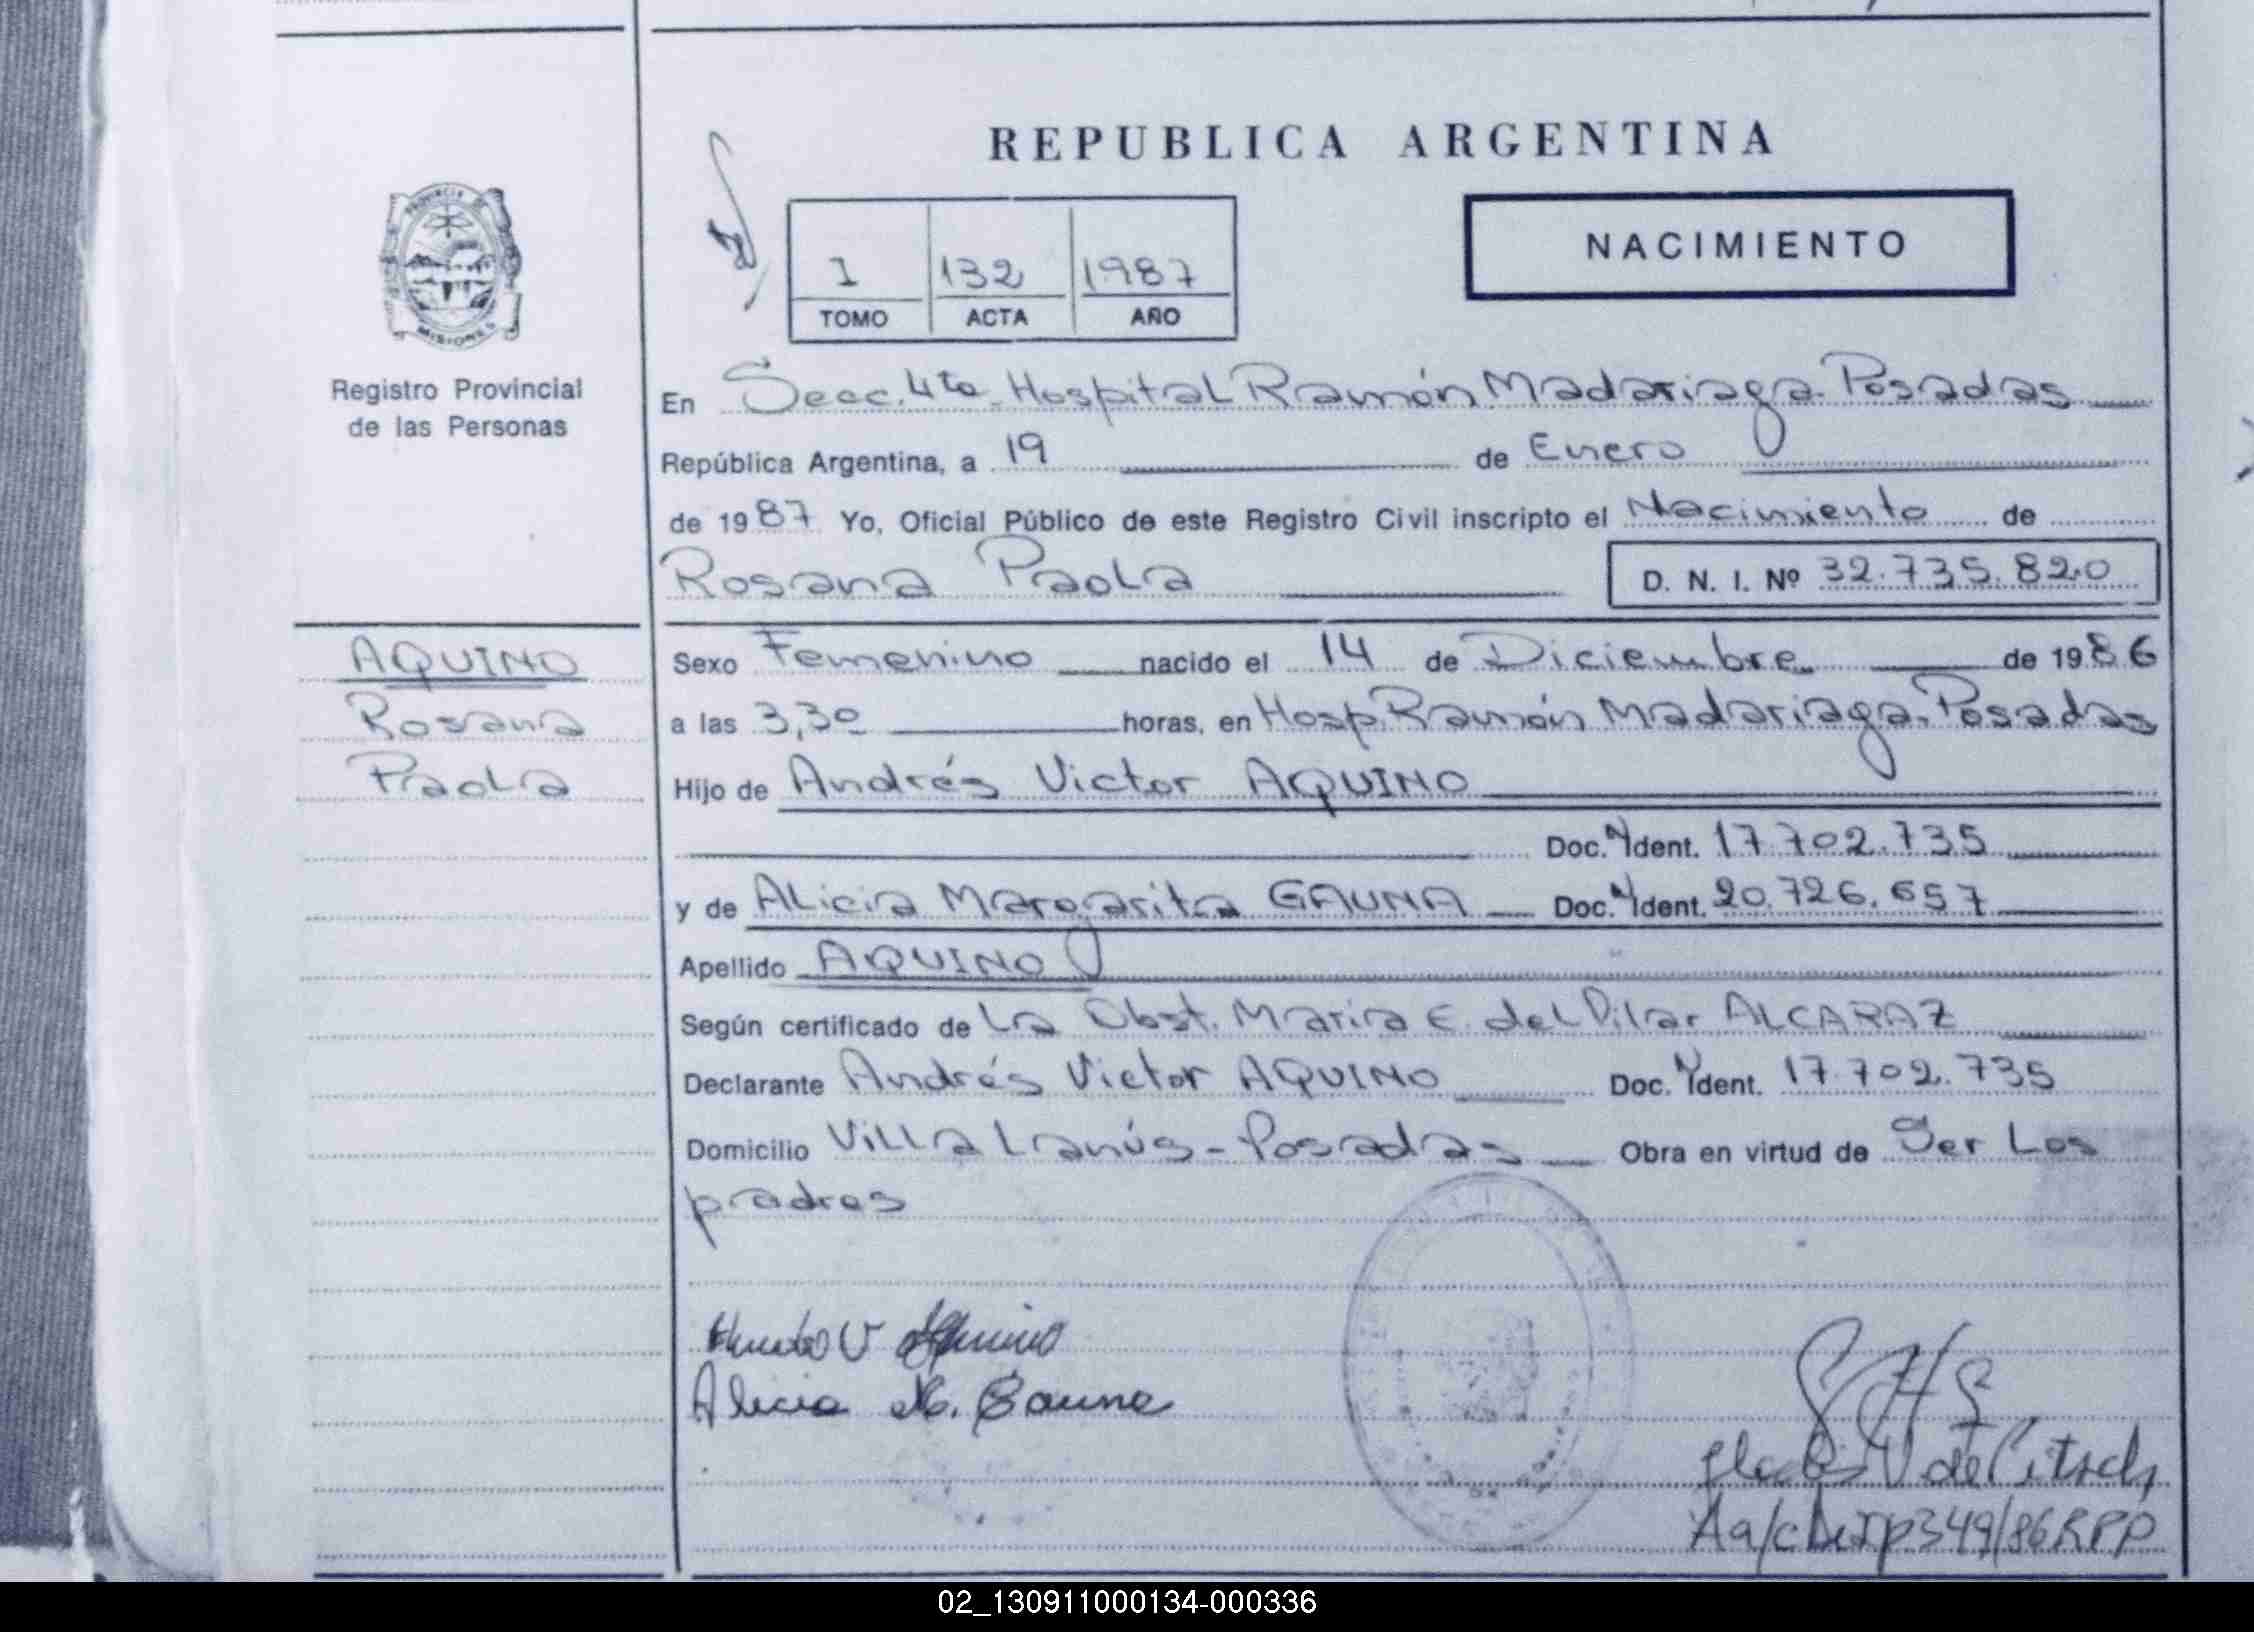 REPUBLICA ARGENTINA
PROVINCIA DE
MISIONES
Registro Provincial
de las Personas
I 132 1987
TOMO ACTA AÑO
NACIMIENTO
En Secc. 4ta. Hospital Ramón Madariaga. Posadas
República Argentina, a 19 de Enero
de 1987 Yo, Oficial Público de este Registro Civil inscripto el Nacimiento de
Rosana Paola D. N. I. Nº 32.735.820
AQUINO
Rosana
Paola
Sexo Femenino nacido el 14 de Diciembre de 1986
a las 3,30 horas, en Hosp. Ramón Madariaga. Posadas
Hijo de Andrés Victor AQUINO
Doc. Ident. 17.702.735
y de Alicia Margarita GAUNA Doc. Ident. 20.726.657
Apellido AQUINO
Según certificado de La Obst. Maria E. del Pilar ALCARAZ
Declarante Andrés Victor AQUINO Doc. Ident. 17.702.735
Domicilio Villa Lanús - Posadas Obra en virtud de Ser Los
padres
V Aquino
Alicia M. Gauna
V de
349/86 RPP
02_130911000134-000336